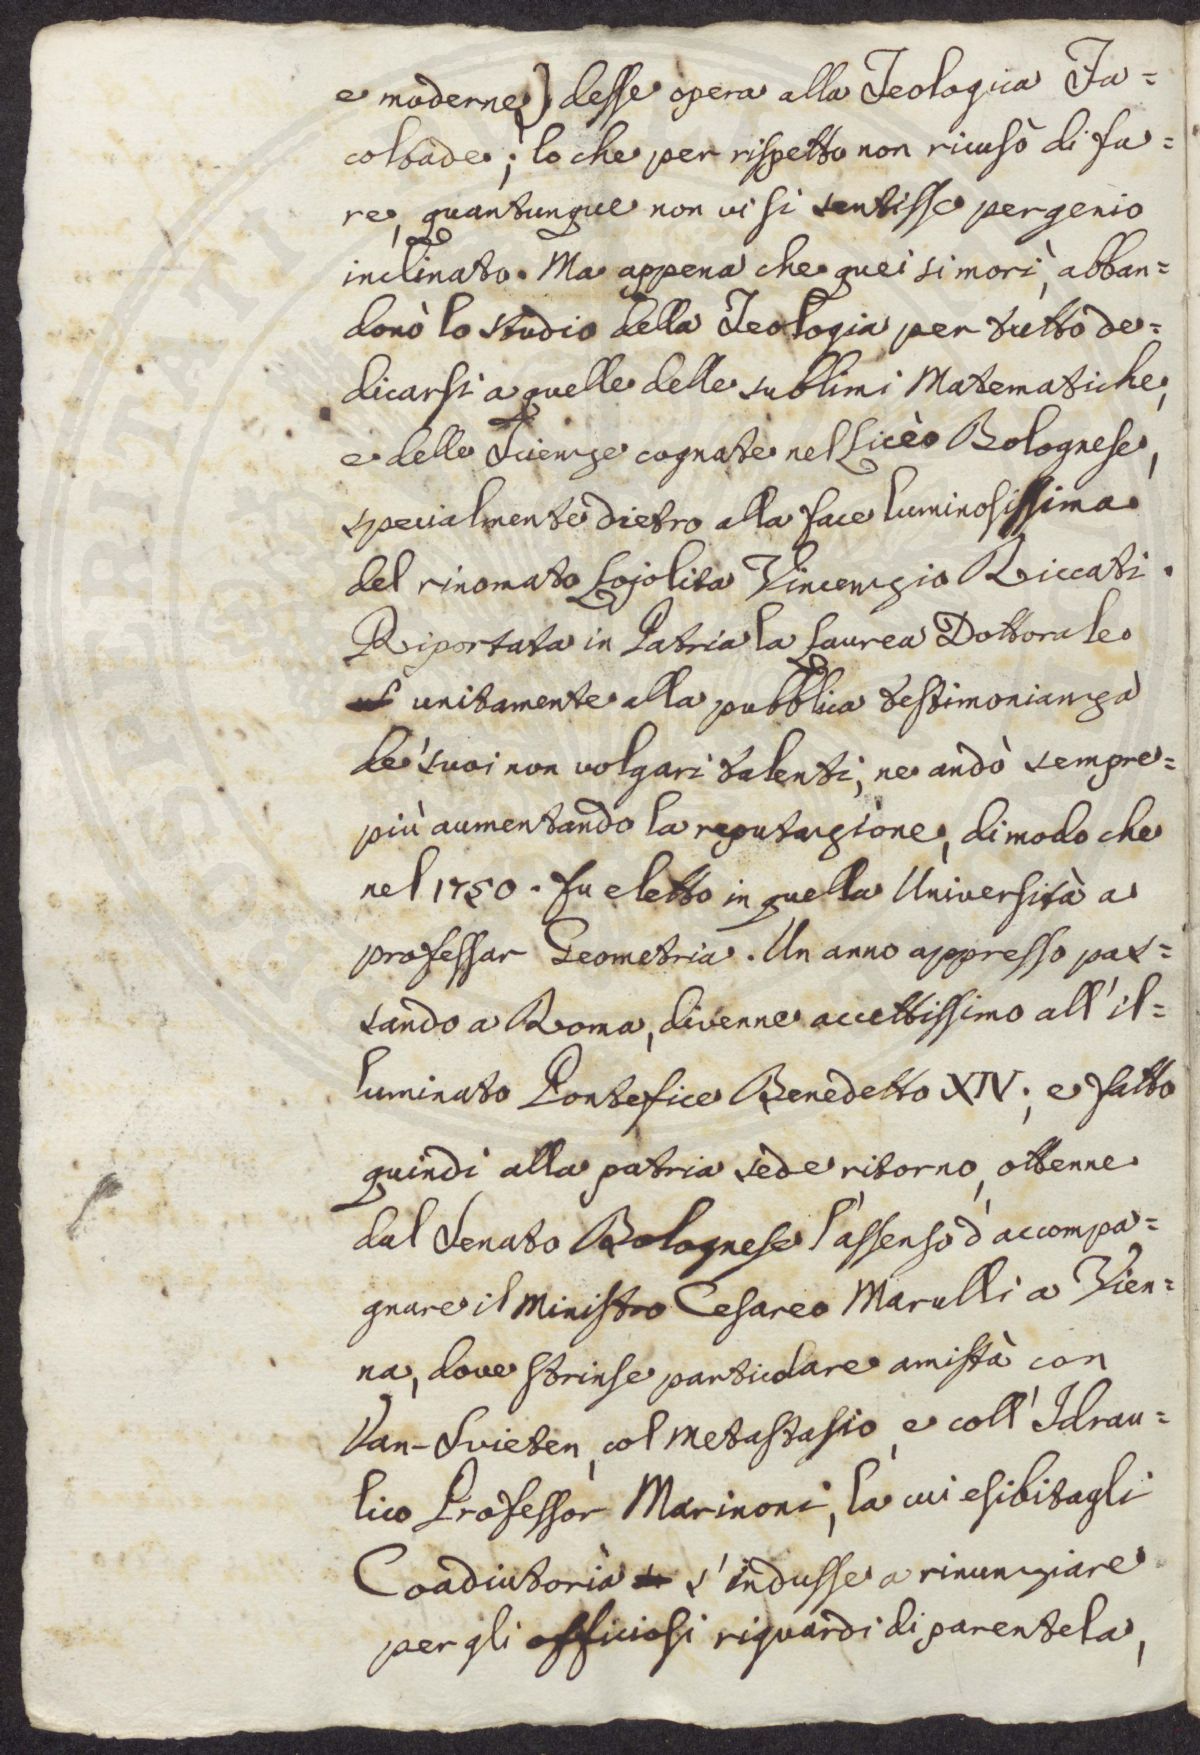 e moderne) desse opera alla Teologica Fa=
coltade; lo che per rispetto non ricusò di fa=
re, quantunque non vi si sentisse per genio
inclinato. Ma appena che quei si morì, abban=
donò lo studio della Teologia per tutto de=
dicarsi a quelle delle sublimi Matematiche,
e delle Scienze cognate nel Licèo Bolognese,
specialmente dietro alla face luminosissima
del rinomato Lojolita Vincenzio Riccati.
Riportata in Patria la Laurea Dottorale
unitamente alla pubblica testimonianza
de' suoi non volgari talenti, ne andò sempre=
più aumentando la reputazione, di modo che
nel 1750. fu eletto in quella Università a
professar Geometria. Un anno appresso pas=
sando a Roma, divenne accettissimo all' il=
luminato Pontefice Benedetto XIV.; e fatto
quindi alla patria sede ritorno, ottenne
dal Senato Bolognese l'assenso d'accompa=
gnare il Ministro Cesareo Marulli a Vien=
na, dove strinse particolare amistà con
Van-Svieten, col Metastasio, e coll' Idrau=
lico Professor Marinoni, la cui esibitagli
Coadiutorìa s'indusse a rinunziare
per gli officiosi riguardi di parentela,